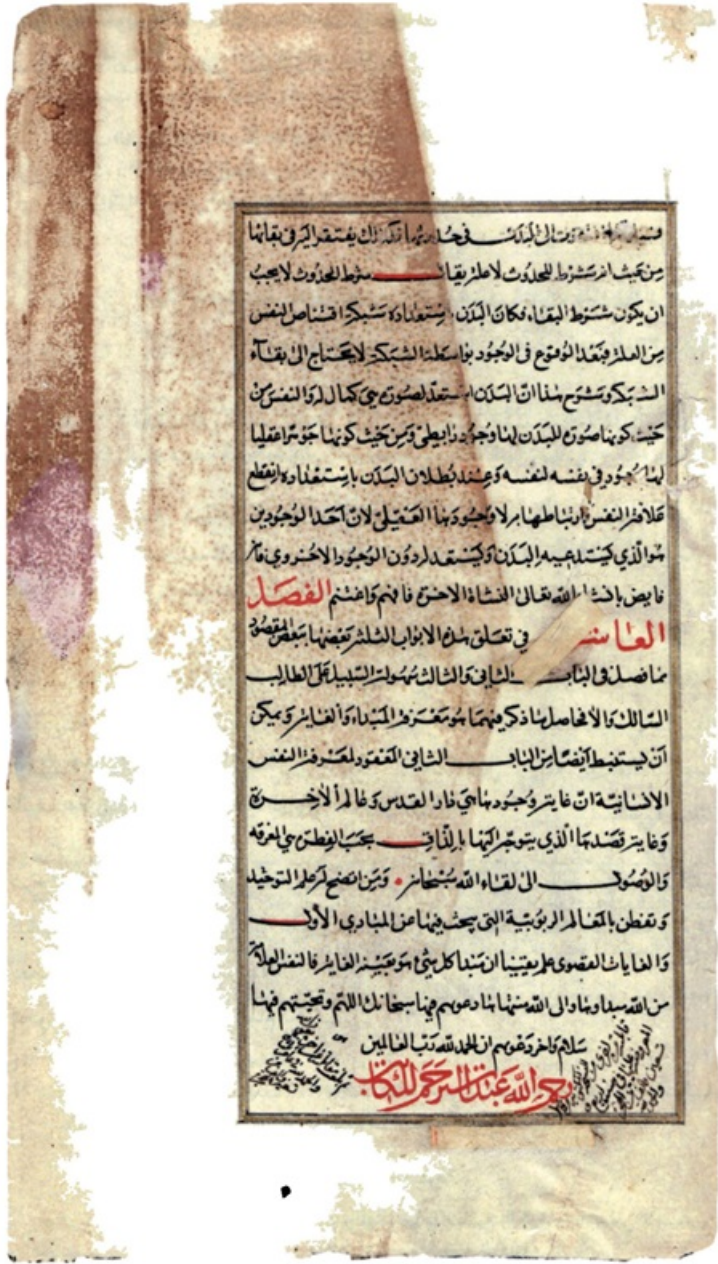 البدن في حدوثها فكذلك يفتقر اليه في بقائها
من حيث انه شرط للحدوث لا مطلقا شرط الحدوث لا يجب
ان يكون شرط البقاء فكان البدن باستعداده شبكة اقتناص النفس
من العلة فبعد الوقوع في الوجود بواسطة الشبكة لا يحتاج الى بقاء
الشبكة وشرح هذا انّ البدن استعد لصورة هي كمال له والنفس من
حيث كونها صورة للبدن لها وجود رابطي ومن حيث كونها جوهرا عقليا
لها وجود في نفسه لنفسه وعند بطلان البدن باستعداده انقطع
علاقة النفس وارتباطها به لا وجودها العقلي لان احد الوجودين
هو الذي يستدعيه البدن ويستعد له دون الوجود الاخروي فانه
فايض بانشاء الله تعالى النشاة الاخرة فافهم واغتنم الفصل
العاشر في تعلق هذه الابواب الثلثة بعضها ببعض المقصود
مما فصل في الباب الثاني والثالث سهولة السبيل على الطالب
السالك والا فحاصل ما ذكر فيهما هو معرفة المبداء والغاية ويمكن
أن يستنبط أيضا من الباب الثاني المعقود لمعرفة النفس
الانسانية انّ غاية وجودها هي دار القدس وعالم الاخرة
وغاية قصدها الذي يتوجه اليها بالذات بحسب الفطرة هي المعرفة
والوصول الى لقاء الله سبحانه ومن اتضح له علم التوحيد
وتفطن بالمعالم الربوبية التي يبحث فيها عن المبادي الأول
والغايات القصوى علم يقينا ان مبدا كل شئ هو بعينه الغاية فالنفس العلامة
من الله مبداوها والى الله منتهاها ودعويهم فيها سبحانك اللهم وتحيتهم فيها
سلام واخر دعويهم ان الحمد لله رب العالمين
رحم الله عبدا ترحم للكاتب